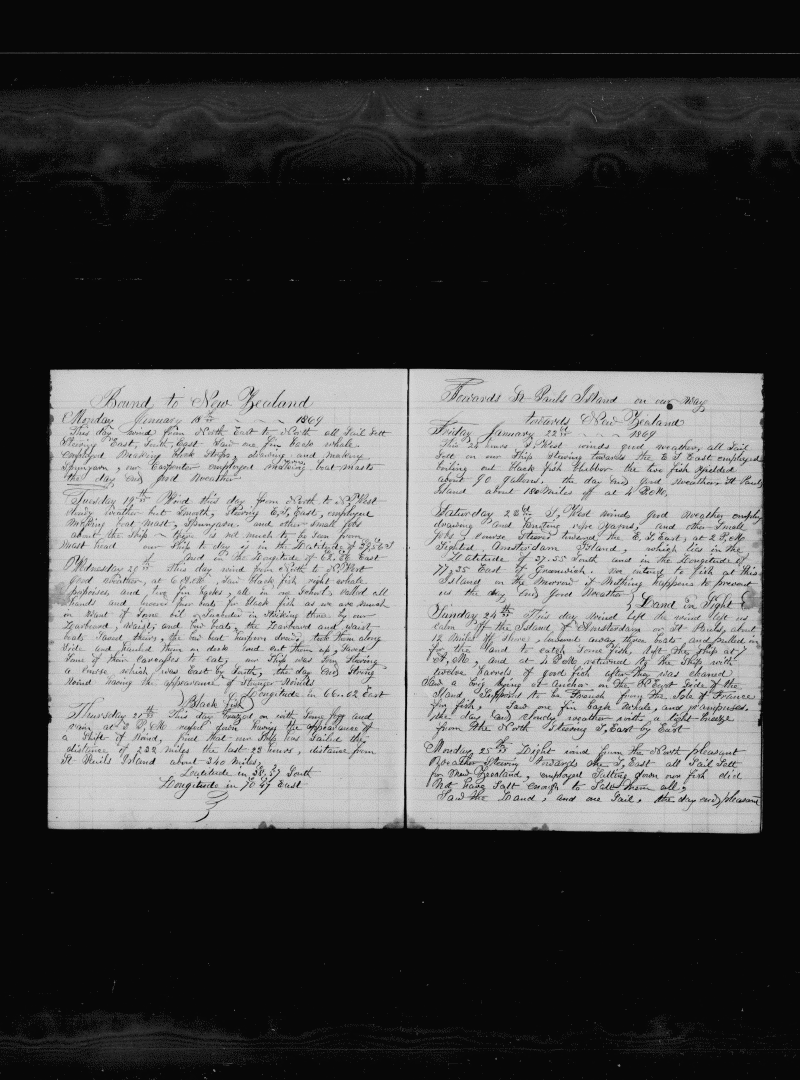 Bound to New Zealand
Monday January 18th 1869
This day wind from North East to North all Sail Sett
Stering East, South, East Saw one fin back whale
employed Breaking Black Stops, drawing and making
Spunyarn, our Carpenter employed making boat masts
the day end good weather
Tuesday 19th Wind this day from North to N, West
weather but Length, Stering E, S, East, employed
making boat mast, Spunyarn and other small jobs
about the ship there is not much to be seen from
mast head our Ship to day is in the Latitude of
And in the Longitude of East
Wednesday 20th This day wind from North to N, West
Good weather, at 6 A.M. Saw black fish right whale
porpoises, and five fin backs, all in one school, called all
hands and lowered four boats for black fish as we are much
in want of some oil, in Striking three by our
Larboard, Waist, and bow boats, the Larboard and waist
boats Saved theirs, the bow boat took them along
Side and hauled them on deck and cut them up, Saved
Some of their carcasses to eat, our Ship was Stering
a course which was East by South, the day end Strong
Wind having the appearance of Stronger Winds
Longitude in 66.02 East
Black fish
Thursday 21st This day on with Some fog and
rain, at 2 P,M reefed down having the appearance of
a Shift of Wind, find that our Ship has Sailed the
distance of 232 miles the last 23 hours, distance from
St Pauls Island about 340 Miles,
Leatitude in 38.57 South
Longitude in 70.47 East
Towards St Pauls Island on our way
towards New Zealand
Friday January 22nd 1869
This 24 hours S, West winds good weather, all Sail
Sett on our Ship Stering towards the E S East employed
boiling out black fish blubber the two fish yielded
about 90 gallons. the day end good weather. St Pauls
Island about 180 miles off at 4 P.M.
Saturday S, West wind good weather employ
drawing and knotting rope yarns, and other Small
jobs course Steered towards the E, S, East, at 2 P,M
Sighted Amsterdam Island, which lies in the
Latitude of 37.55 South and in the Longitude of
77,35 East of Greenwich. we intend to fish at this
Island on the Morrow if Nothing happens to prevent
us the day end Good Weather Land in Sight
Sunday 24th This day Wind left us
calm off the Island of Amsterdam or St Pauls, about
12 Miles off shore, lowered away three boats and pulled in
for the land to catch Some fish, left the Ship at 7
A, M, and at 4 P.M returned to the Ship with
twelve barrels of good fish after they was cleaned
Saw a brig lying at Anchor on the N East Side of the
Island, Supposed to be French from the Isle of France
for fish, Saw one fin back Whale, and porpoises.
the day end cloudy weather with a light breeze
from the North Stering S, East by East
Monday 25th Light wind from the North pleasant
Weather Stering towards the S, East all Sail Sett
for New Zeesland, employed Salting down our fish did
Not have Salt enough to Salt them all,
Saw the Land, and one Sail, the day end pleasant